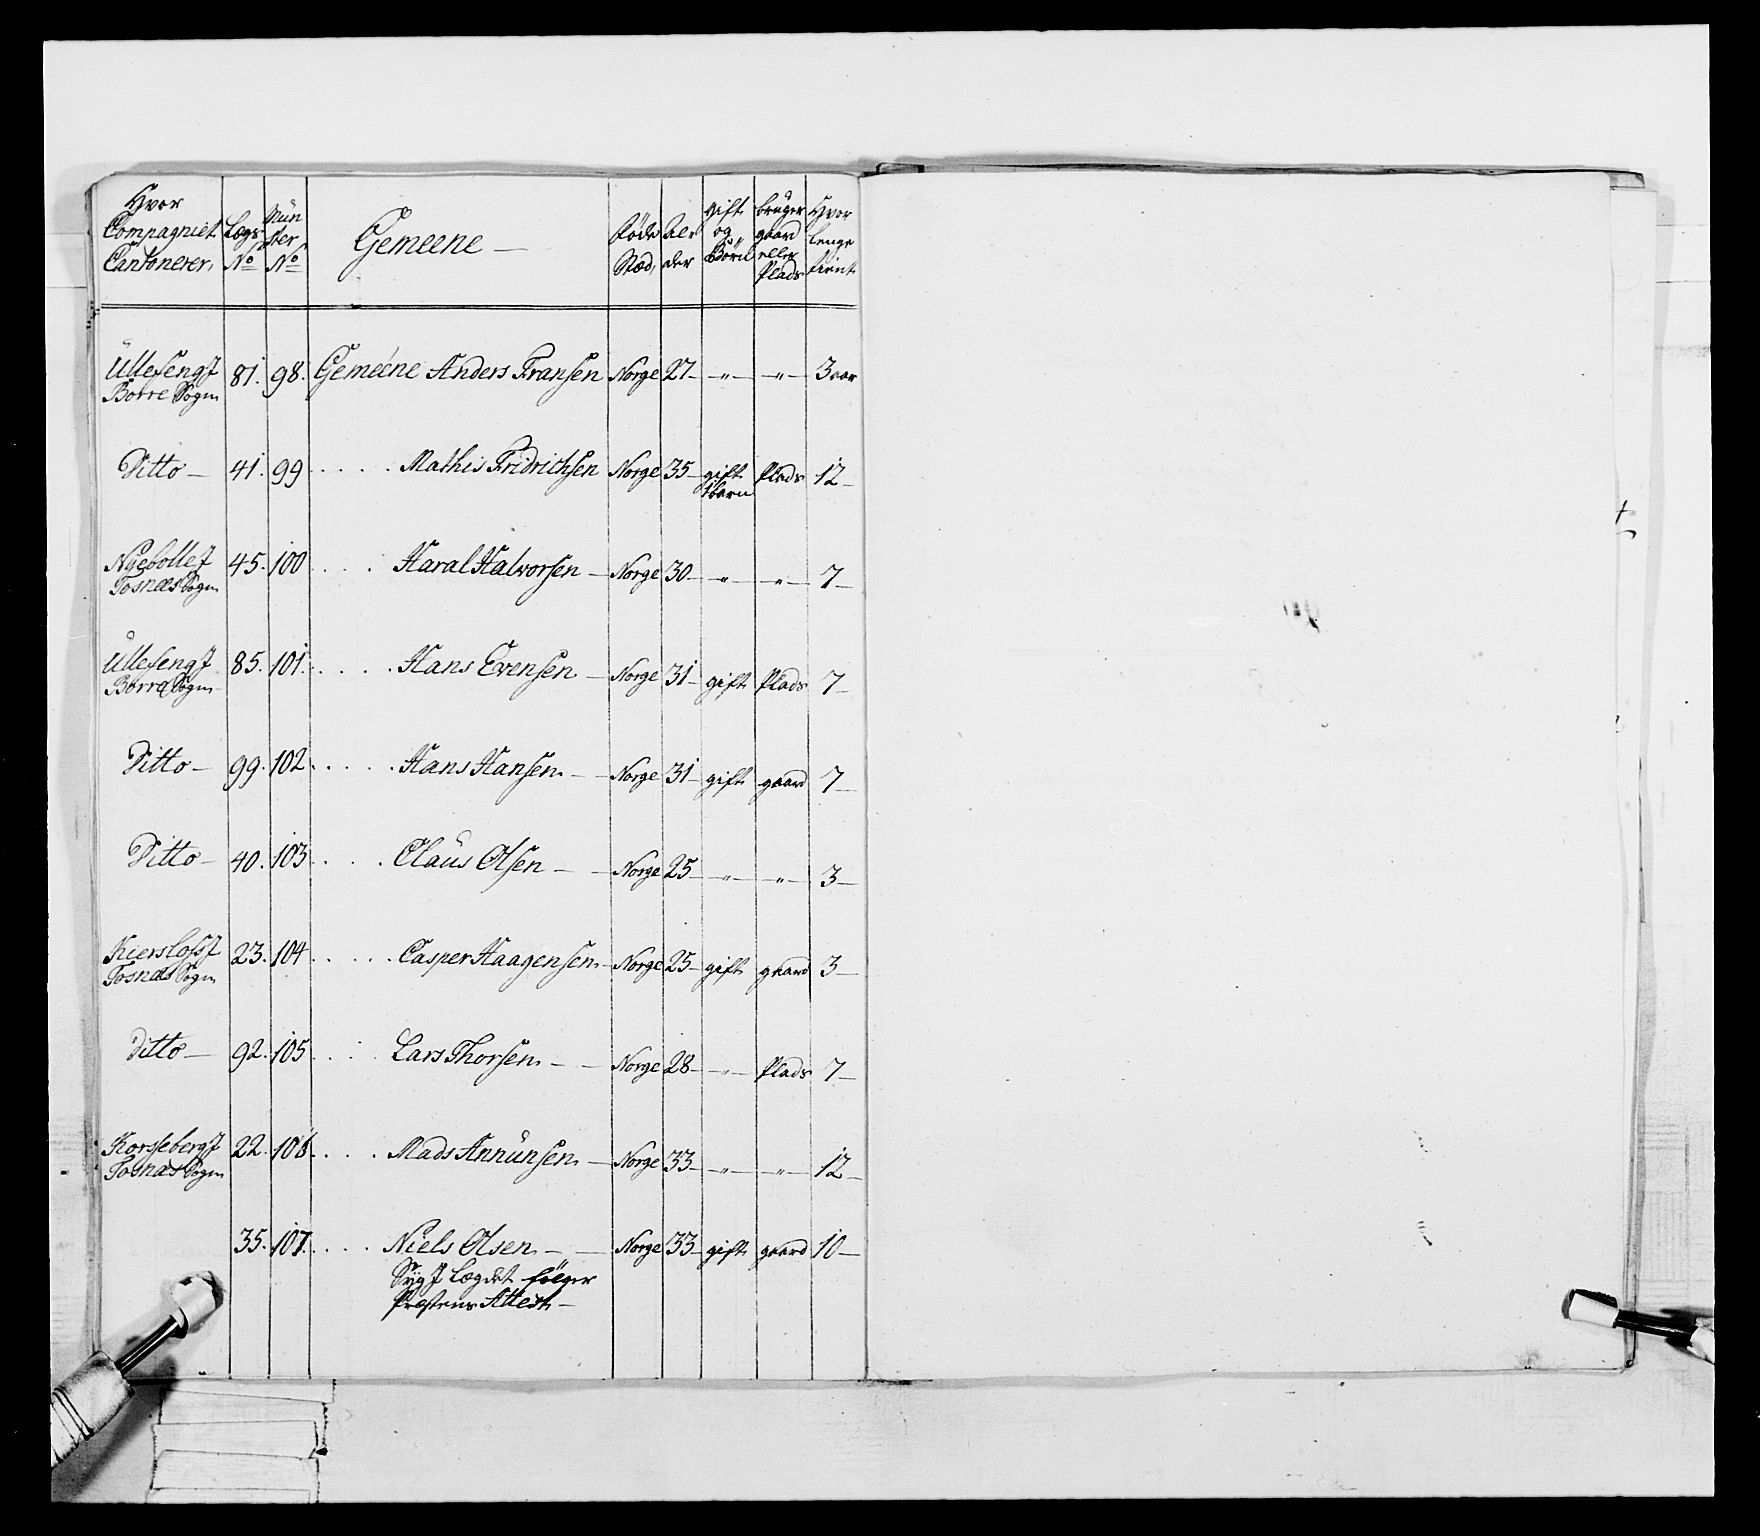 Hvor Compagniet Cantonerer, | Lægs No | Mün ster No | Gemeene — | Føde Stæd, | Al der | gift og Börn | brüger gaard eller Plads | Hvor lenge tient
ÜllesengJ Borre Sogn | 81. | 98. | Gemeene Anders Fransen | Norge | 27 — | — " — | — " — | 3 aar
Ditto — | 41. | 99 | . . . . . Mathis Fridrichsen | Norge | 35 — | gift 1 barn | Plads | 12 —
NÿebolleJ Tosnæs Sogn | 45. | 100 | . . . . Haral Halvorsen — | Norge | 30 — | — " — | — " — | 7 —
ÜllesengJ Borre Sogn | 85. | 101. | . . . . Hans Evensen — | Norge | 31 — | gift | Plads | 7 —
Ditto — | 99. | 102 | . . . . . Hans Hansen — — | Norge | 31 — | gift | gaard | 7 —
Ditto — | 40. | 103 | . . . . Claüs Olsen — — | Norge | 25 | — " — | — " — | 3 —
KierslossJ Tosnæs Sogn | 23. | 104 | . . . . . Casper Haagensen — | Norge | 25 — | gift | gaard | 3 —
Ditto — | 92. | 105 | . . . . Lars Thorsen — — | Norge | 28 — | — " — | Plads | 7 —
KorssebergJ Tosnæs Sogn | 22. | 106 | . . . . Mads Annünsen — | Norge | 33 — | — " — | — " — | 12 —
35. | 107. | . . . . Niels Olsen — — | Norge | 33 — | gift | gaard | 10 —
Sÿg J Lægdet fölger
Præstens Attest —